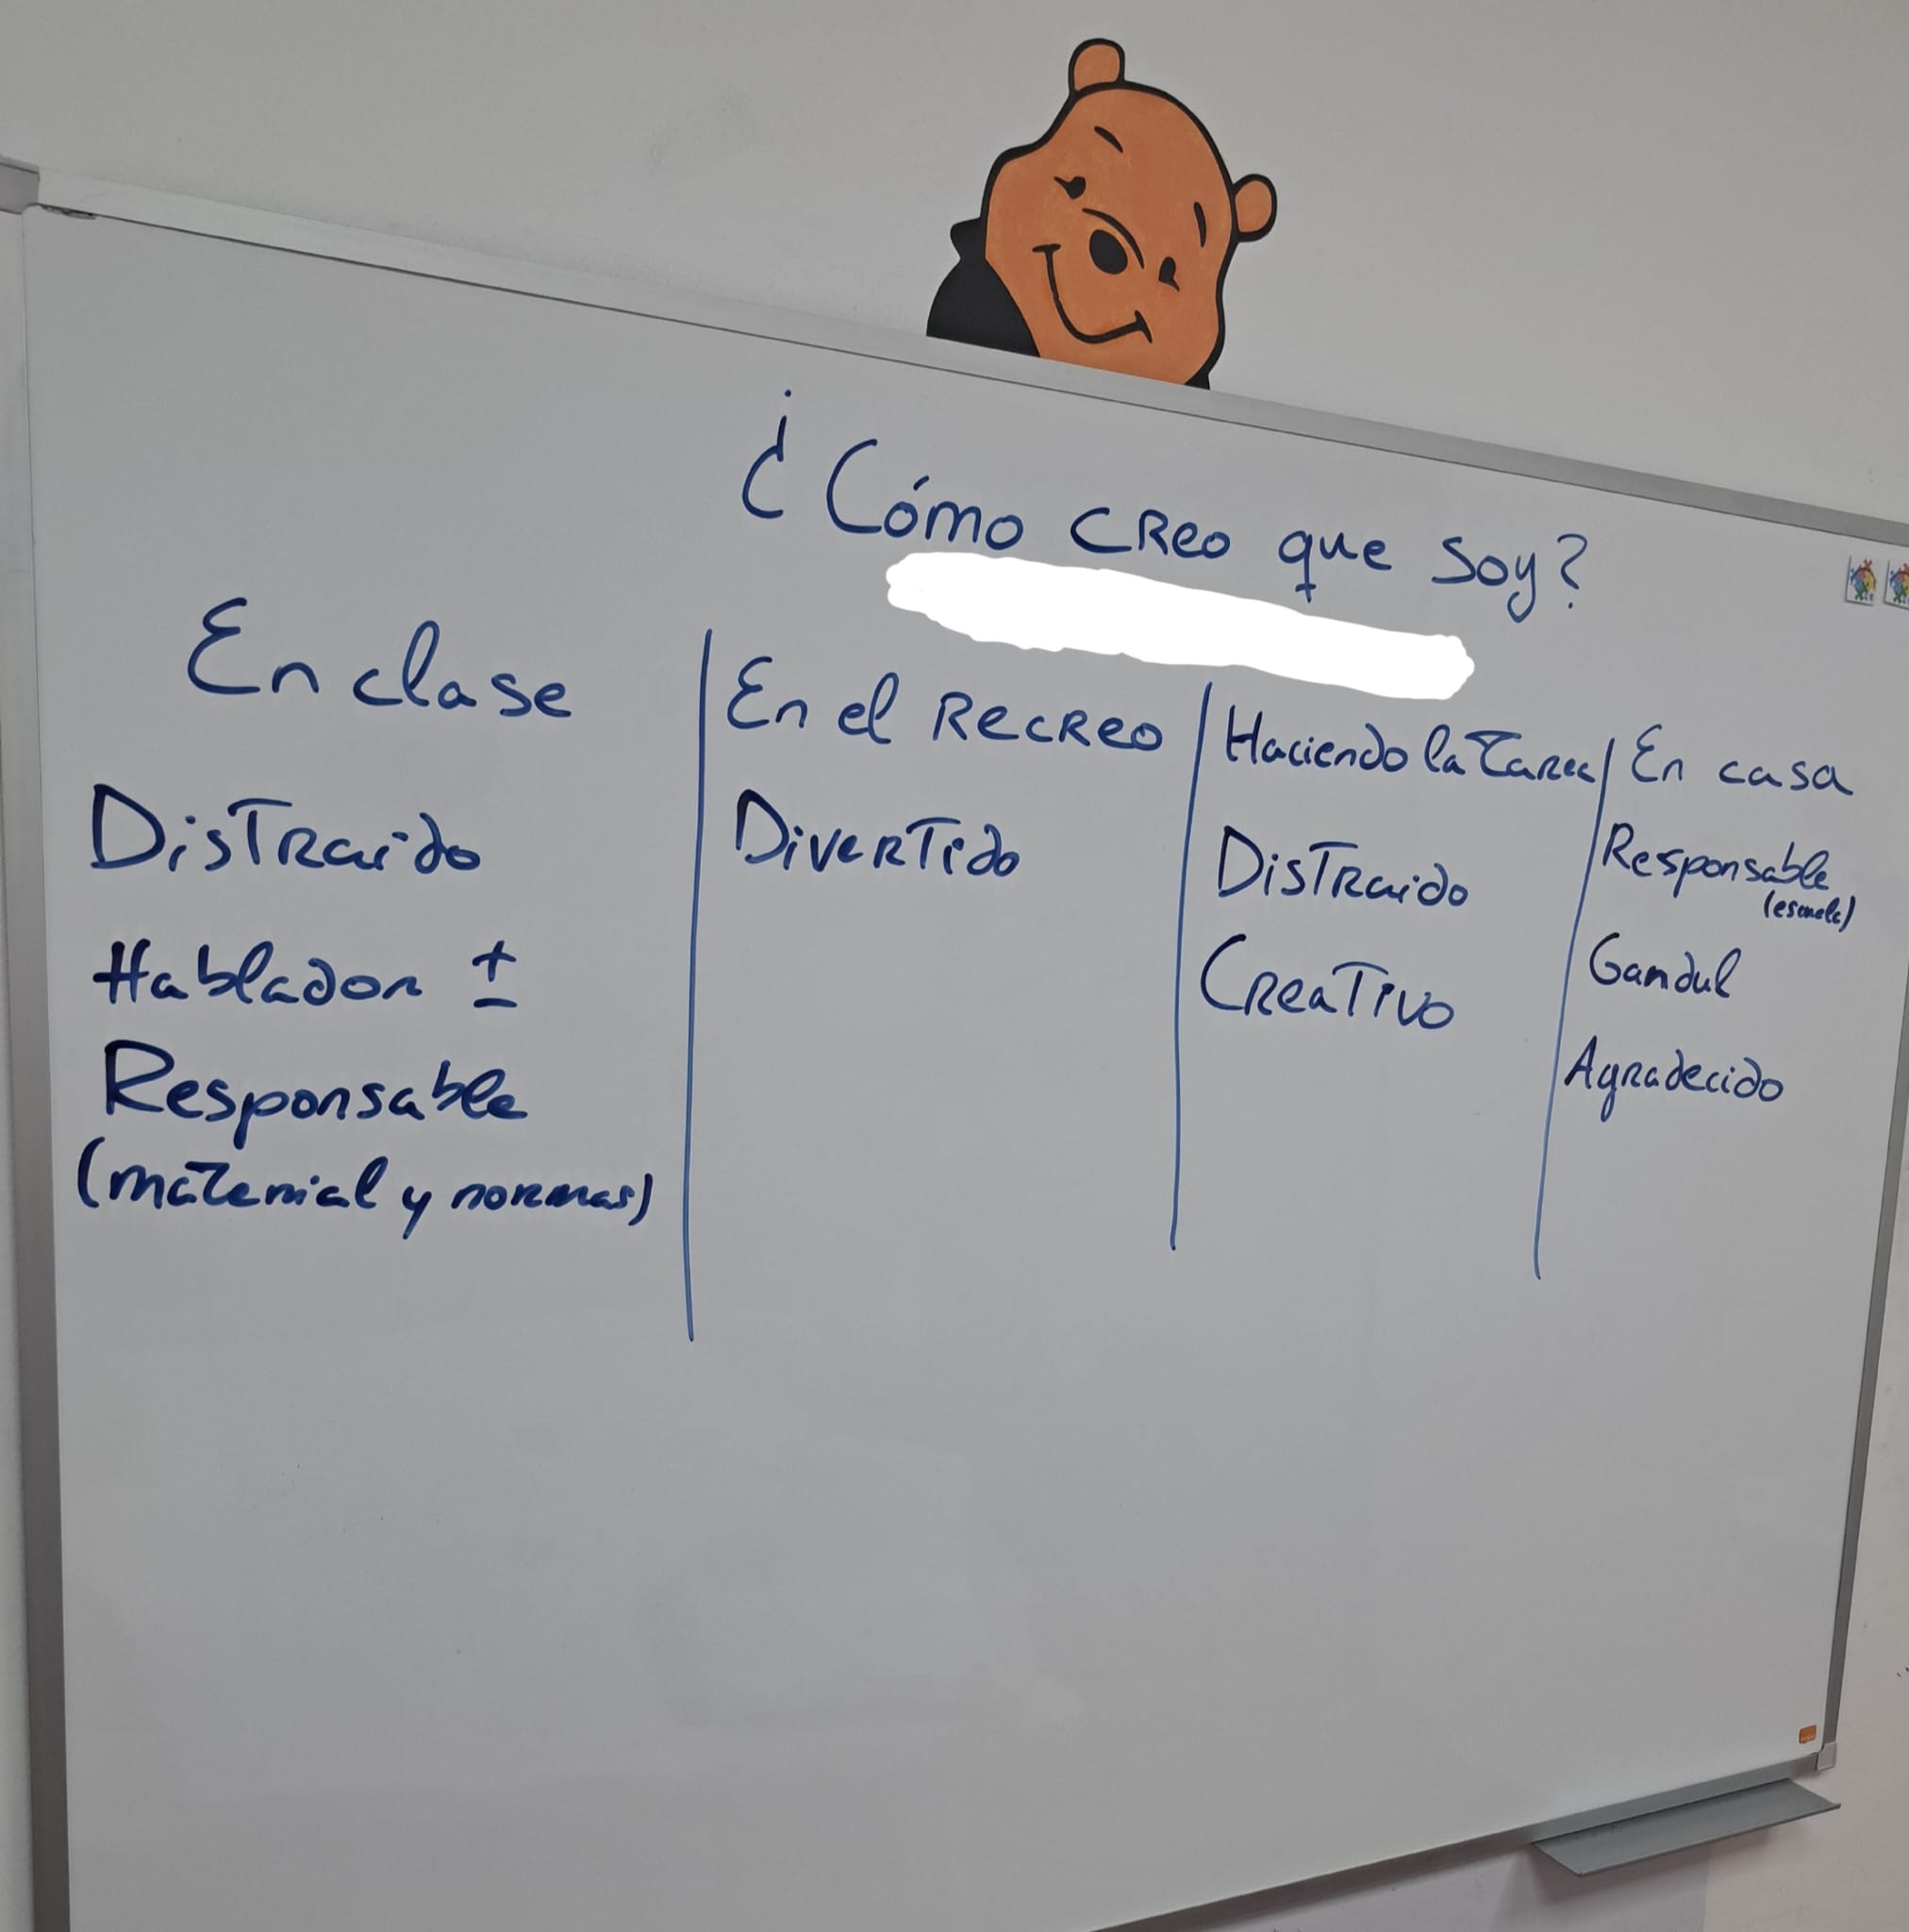 ¿Cómo creo que soy?
En clase
Distraido
Hablador ±
Responsable
(material y normas)
En el recreo
Divertido
Haciendo la tarea
Distraido
Creativo
En casa
Responsable
(escuela)
Gandul
Agradecido